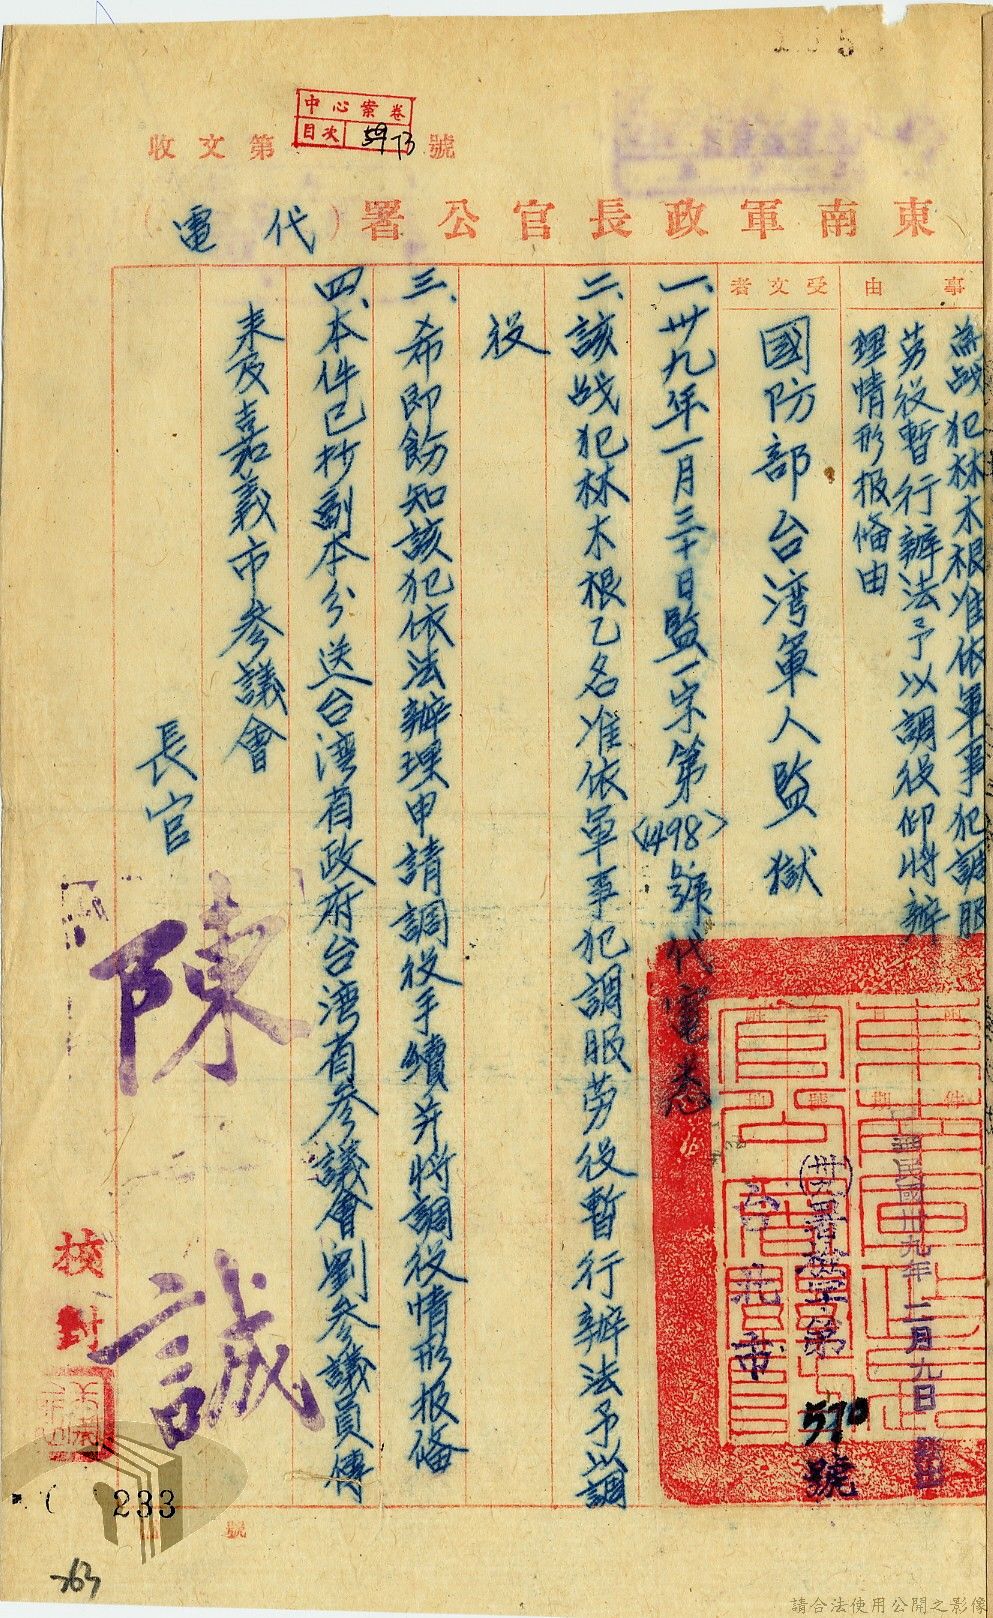 中心案卷
目次 5973
收文第 號
東南軍政長官公署(代電)
事由
為战犯林木根准依軍事犯調服
劳役暫行辦法予以調役仰将辦
理情形报俻由
受文者
國防部台湾軍人監獄
中華民國卅九年二月九日發出
(卅九)署 字第570號
台北市
一、卅九年一月三十日監一宗第(1498)號代電悉
二、該战犯林木根乙名准依軍事犯調服劳役暫行辦法予以調
役
三、希即飭知該犯依法辦理申請調役手續并将調役情形报俻
四、本件已抄副本分送台湾省政府台湾省參議會劉參議員傳
来及嘉義市參議會
長官 陳誠
校對
233
號
763
請合法使用公開之影像